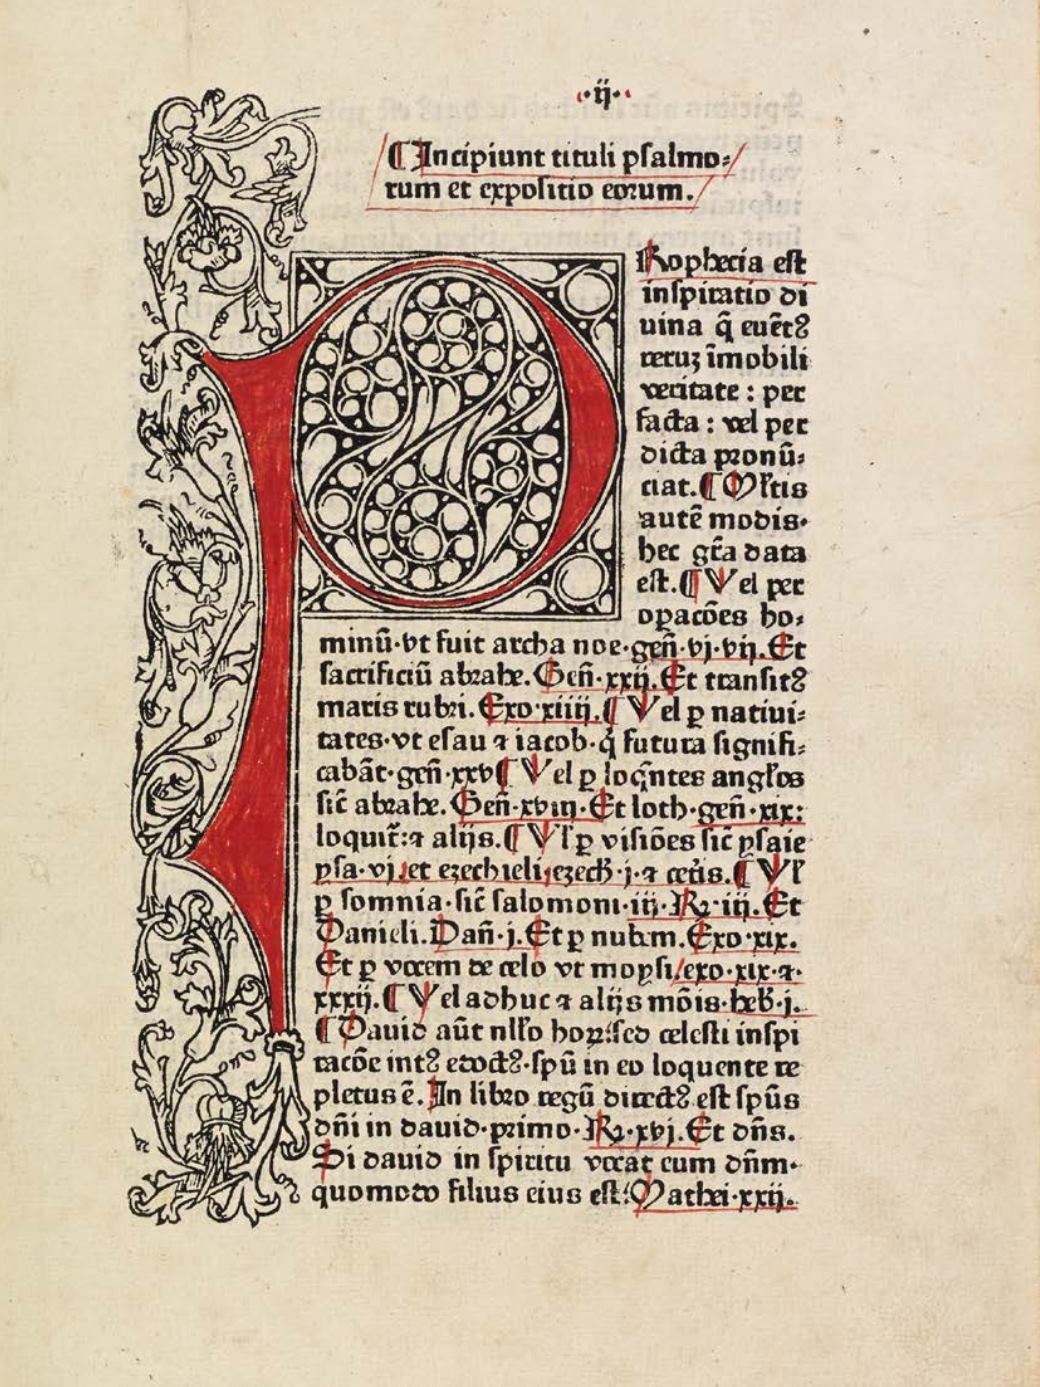 ·ij·
¶ Incipiunt tituli pſalmo⸗
rum et expoſitio eorum.
PRophecia eſt
inſpiratio di
uina q̃ euẽtꝰ
reruꝫ ĩmobili
veritate : per
facta : vel per
dicta pronũ⸗
ciat. ¶ Ml̃tis
autẽ modis·
hec gr̃a data
eſt. ¶ Vel per
oꝑacões ho⸗
minũ·vt fuit archa noe·geñ·vj·vij. Et
ſacrificiũ abrahe. Geñ·xxij. Et tranſitꝰ
maris rubri. Exo·xiiij. ¶ Vel ꝑ natiui⸗
tates·vt eſau ⁊ iacob·q̃ futura ſignifi⸗
cabãt·geñ·xxv ¶ Vel ꝑ loq̃ntes angl̃os
ſic̃ abrahe. Geñ·xviij·Et loth·geñ·xix:
loquit̃:⁊ alijs. ¶ Vl̃ ꝑ viſiões ſic̃ yſaie
yſa·vj et ezechieli ezech̃·j·⁊ cet̃is. ¶ Vl̃
ꝑ ſomnia·ſic̃ ſalomoni·iij·Rꝫ·iij. Et
Danieli. Dañ·j. Et ꝑ nubem. Exo·xix.
Et ꝑ vocem de celo vt moyſi/exo·xix·⁊·
xxxij. ¶ Vel adhuc ⁊ alijs mõis·heb̃·j.
¶ Dauid aũt nll̃o hoꝝ:ſed celeſti inſpi
racõe intꝰ edoctꝰ·ſpũ in eo loquente re
pletus ẽ. In libro regũ directꝰ eſt ſpũs
dñi in dauid·primo·Rꝫ·xvj. Et dñs.
Si dauid in ſpiritu vocat eum dñm·
quomodo filius eius eſt: Mathei·xxij.